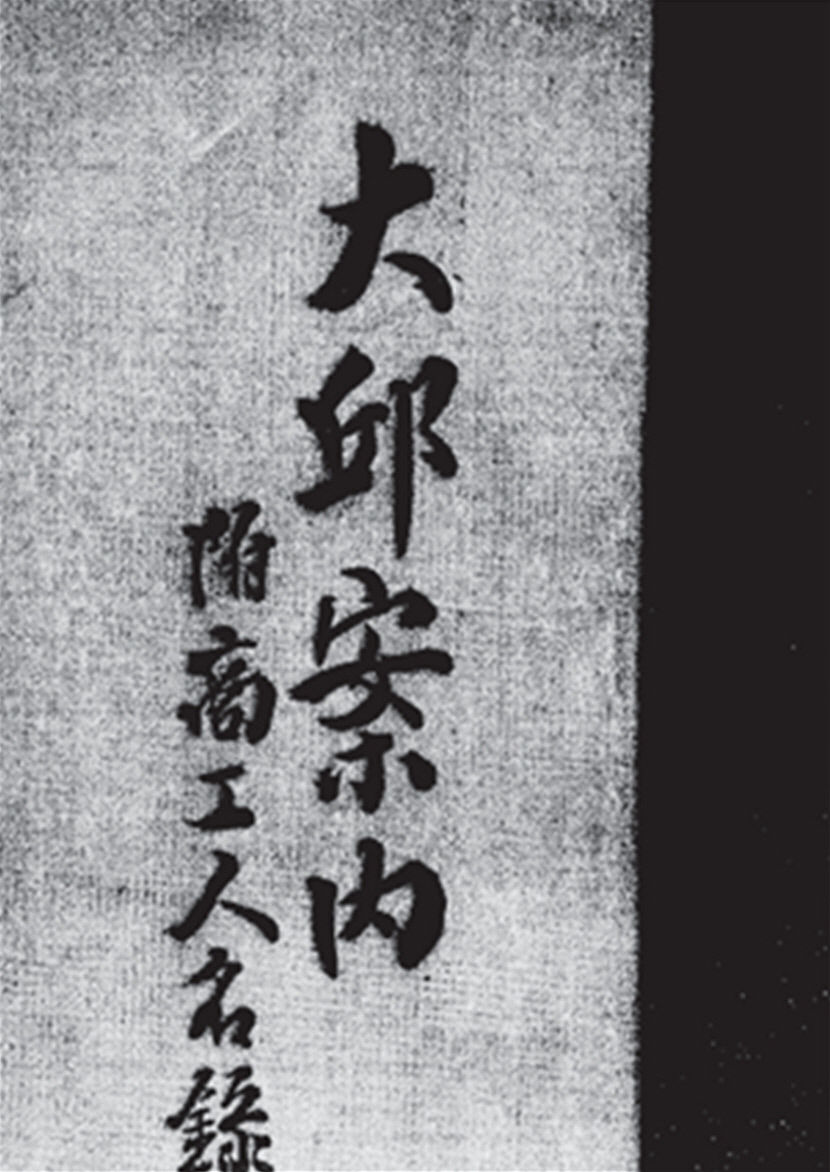 大邱案内
附商工人名錄